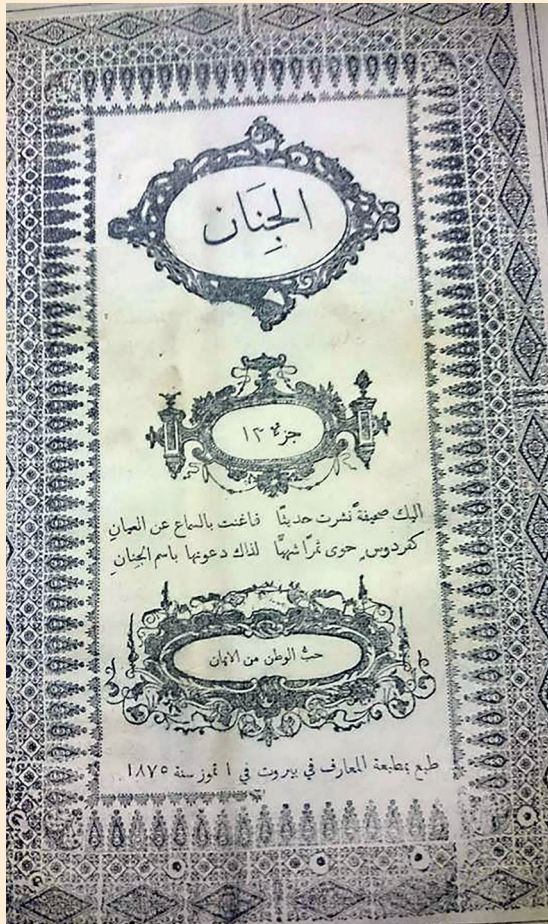 الجِنَان
جزء ١٣
اليك صحيفةً نشرت حديثًا فاغنت بالسماع عن العيانِ
كفردوسٍ حوى ثمرًا شهيًّا لذاك دعوتها باسم الجِنانِ
حبُّ الوطن من الايمان
طبع بمطبعة المعارف في بيروت في ١ تموز سنة ١٨٧٥